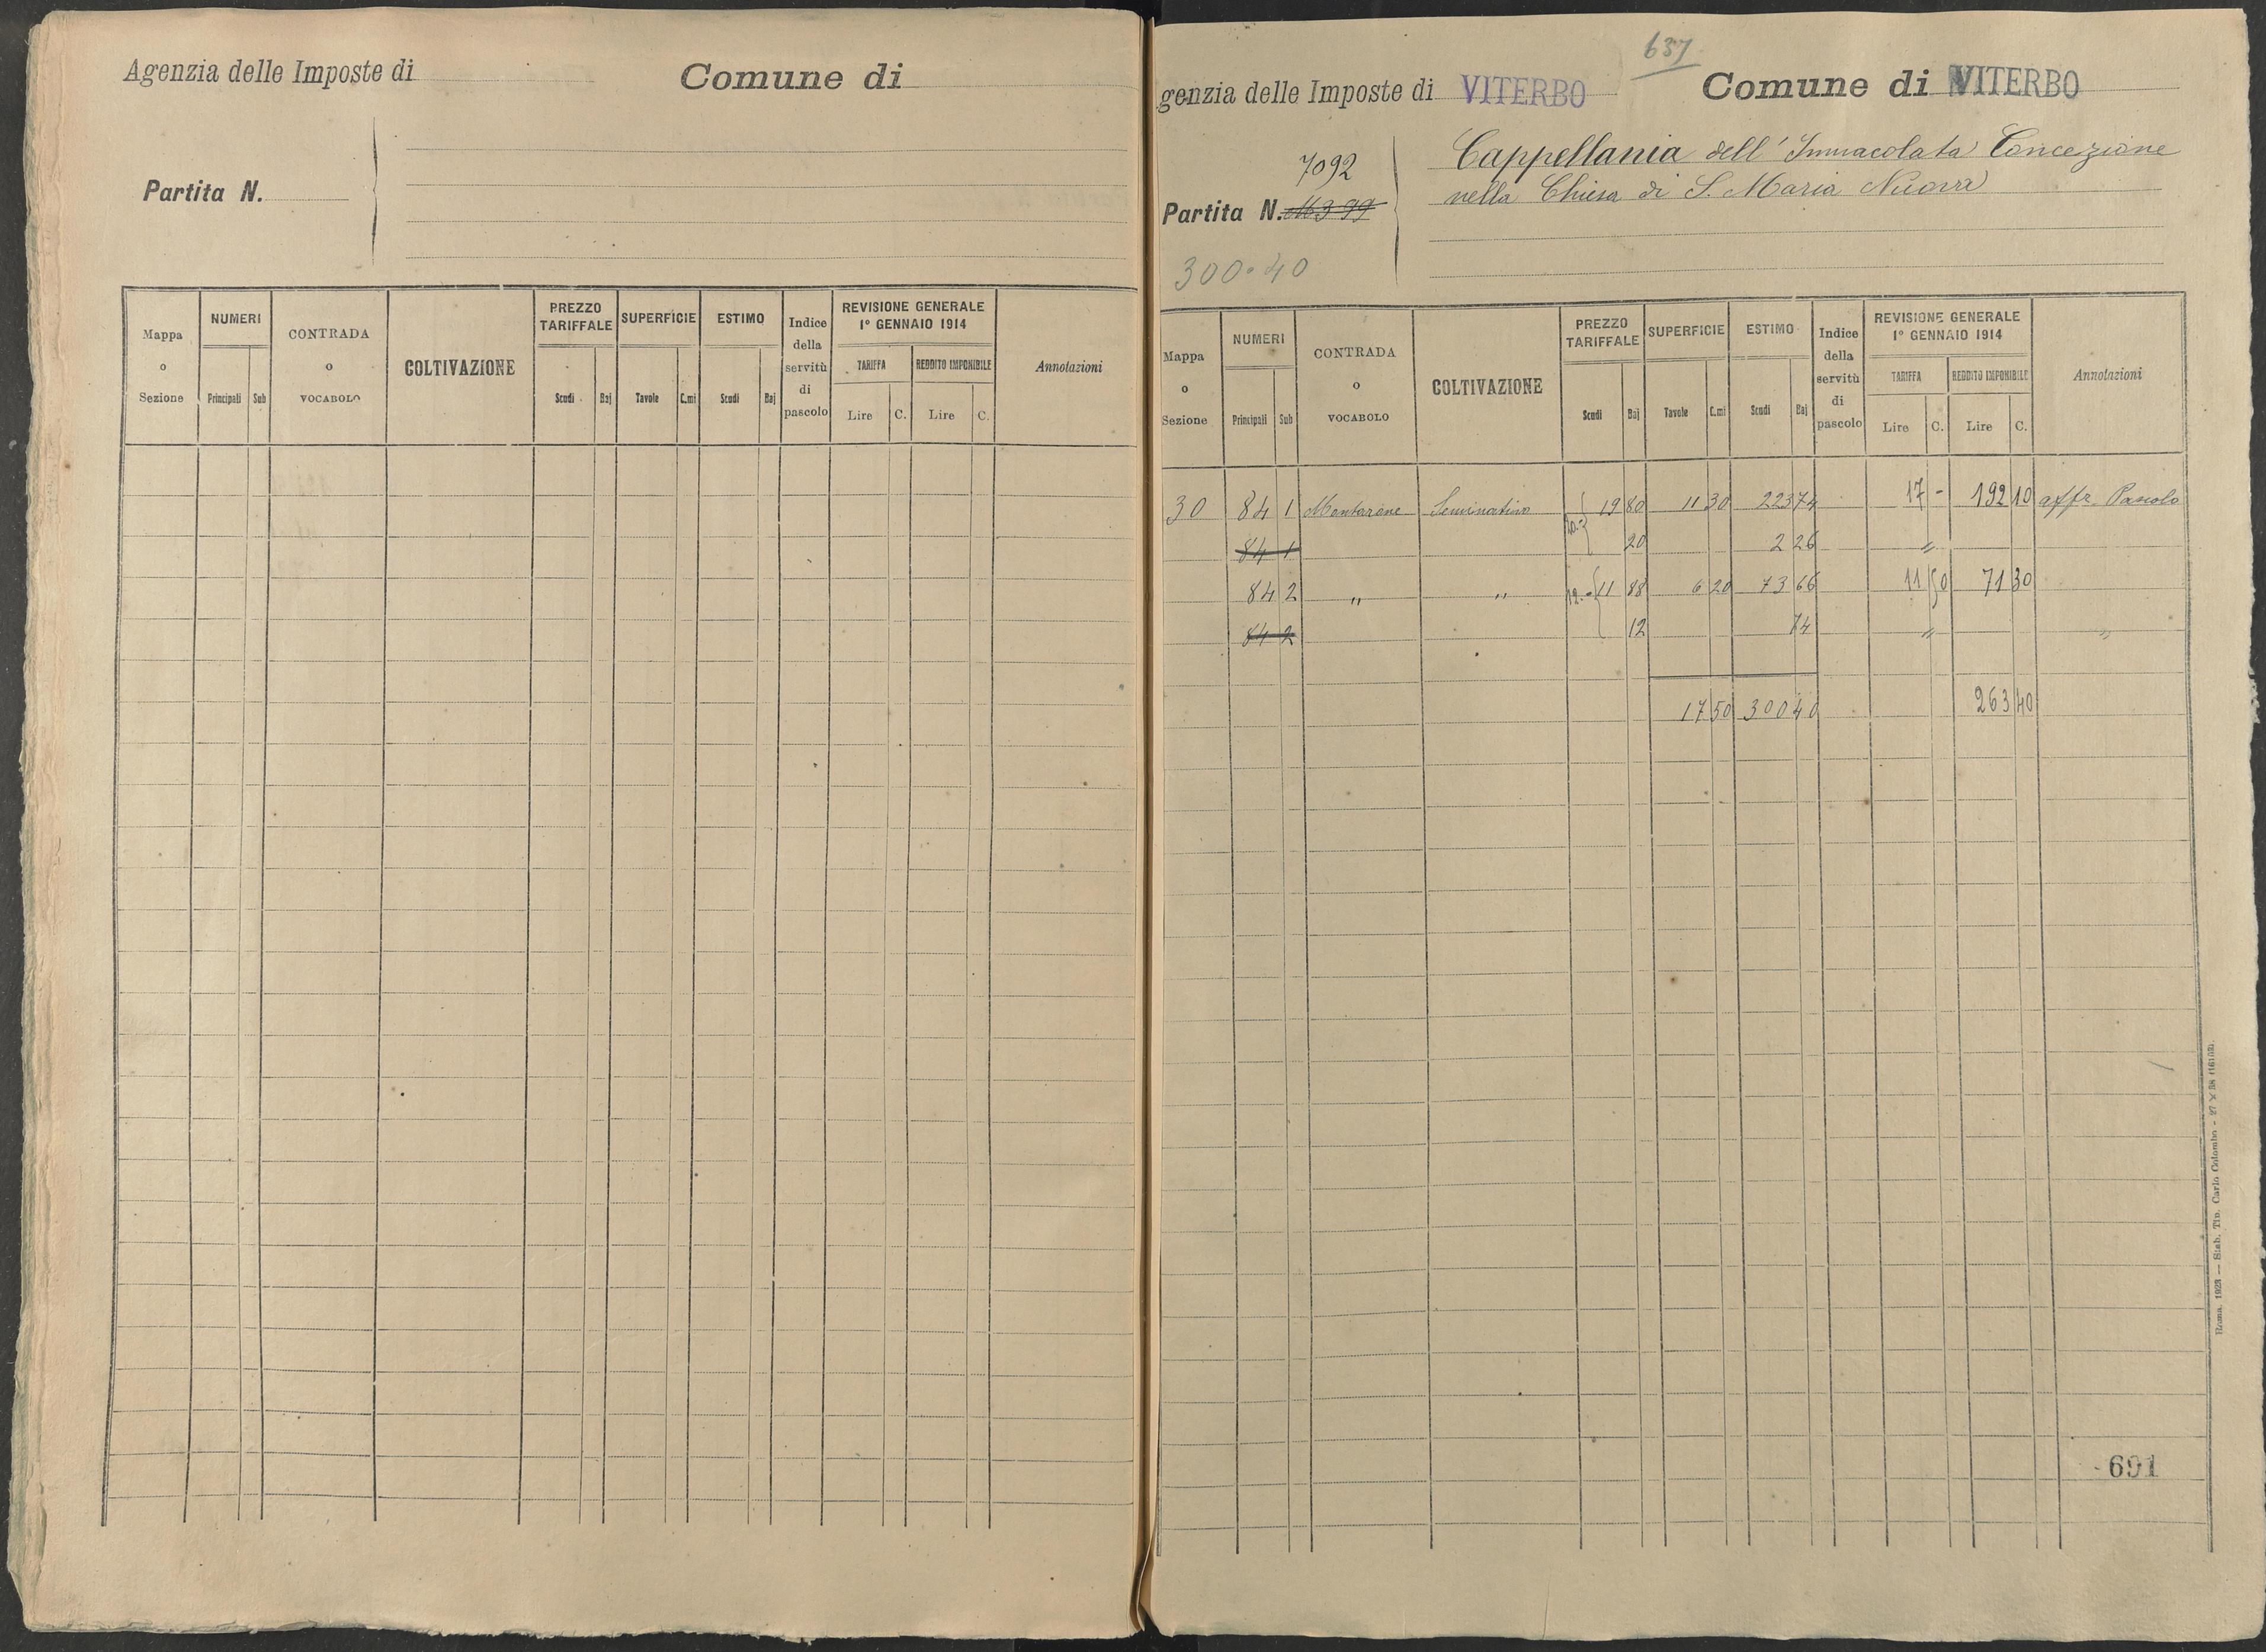 Agenzia delle Imposte di
Comune di
Partita N.
Mappa o Sezione
NUMERI
Principali Sub
CONTRADA o VOCABOLO
COLTIVAZIONE
PREZZO TARIFFALE
Scudi Baj
SUPERFICIE
Tavole C.mi
ESTIMO
Scudi Baj
Indice della servitù di pascolo
REVISIONE GENERALE
1° GENNAIO 1914
TARIFFA
Lire C.
REDDITO IMPONIBILE
Lire C.
Annotazioni
637
genzia delle Imposte di VITERBO
Comune di VITERBO
7092
Partita N.
300.40
Cappellania dell'Immacolata Concezione
nella Chiesa di S. Maria Nuova
Mappa o Sezione
NUMERI
Principali Sub
CONTRADA o VOCABOLO
COLTIVAZIONE
PREZZO TARIFFALE
Scudi Baj
SUPERFICIE
Tavole C.mi
ESTIMO
Scudi Baj
Indice della servitù di pascolo
REVISIONE GENERALE
1° GENNAIO 1914
TARIFFA
Lire C.
REDDITO IMPONIBILE
Lire C.
Annotazioni
30 84 1 Montarone Seminativo 19 80 11 30 223 74 17 - 192 10 affr. Pascolo
84 1 20 2 26 "
84 2 " " 12.- 11 88 6 20 73 66 11 50 71 30
84 2 12 74 " "
17 50 300 40 263 40
691
Roma, 1923 — Stab. Tip. Carlo Colombo - 27 × 38